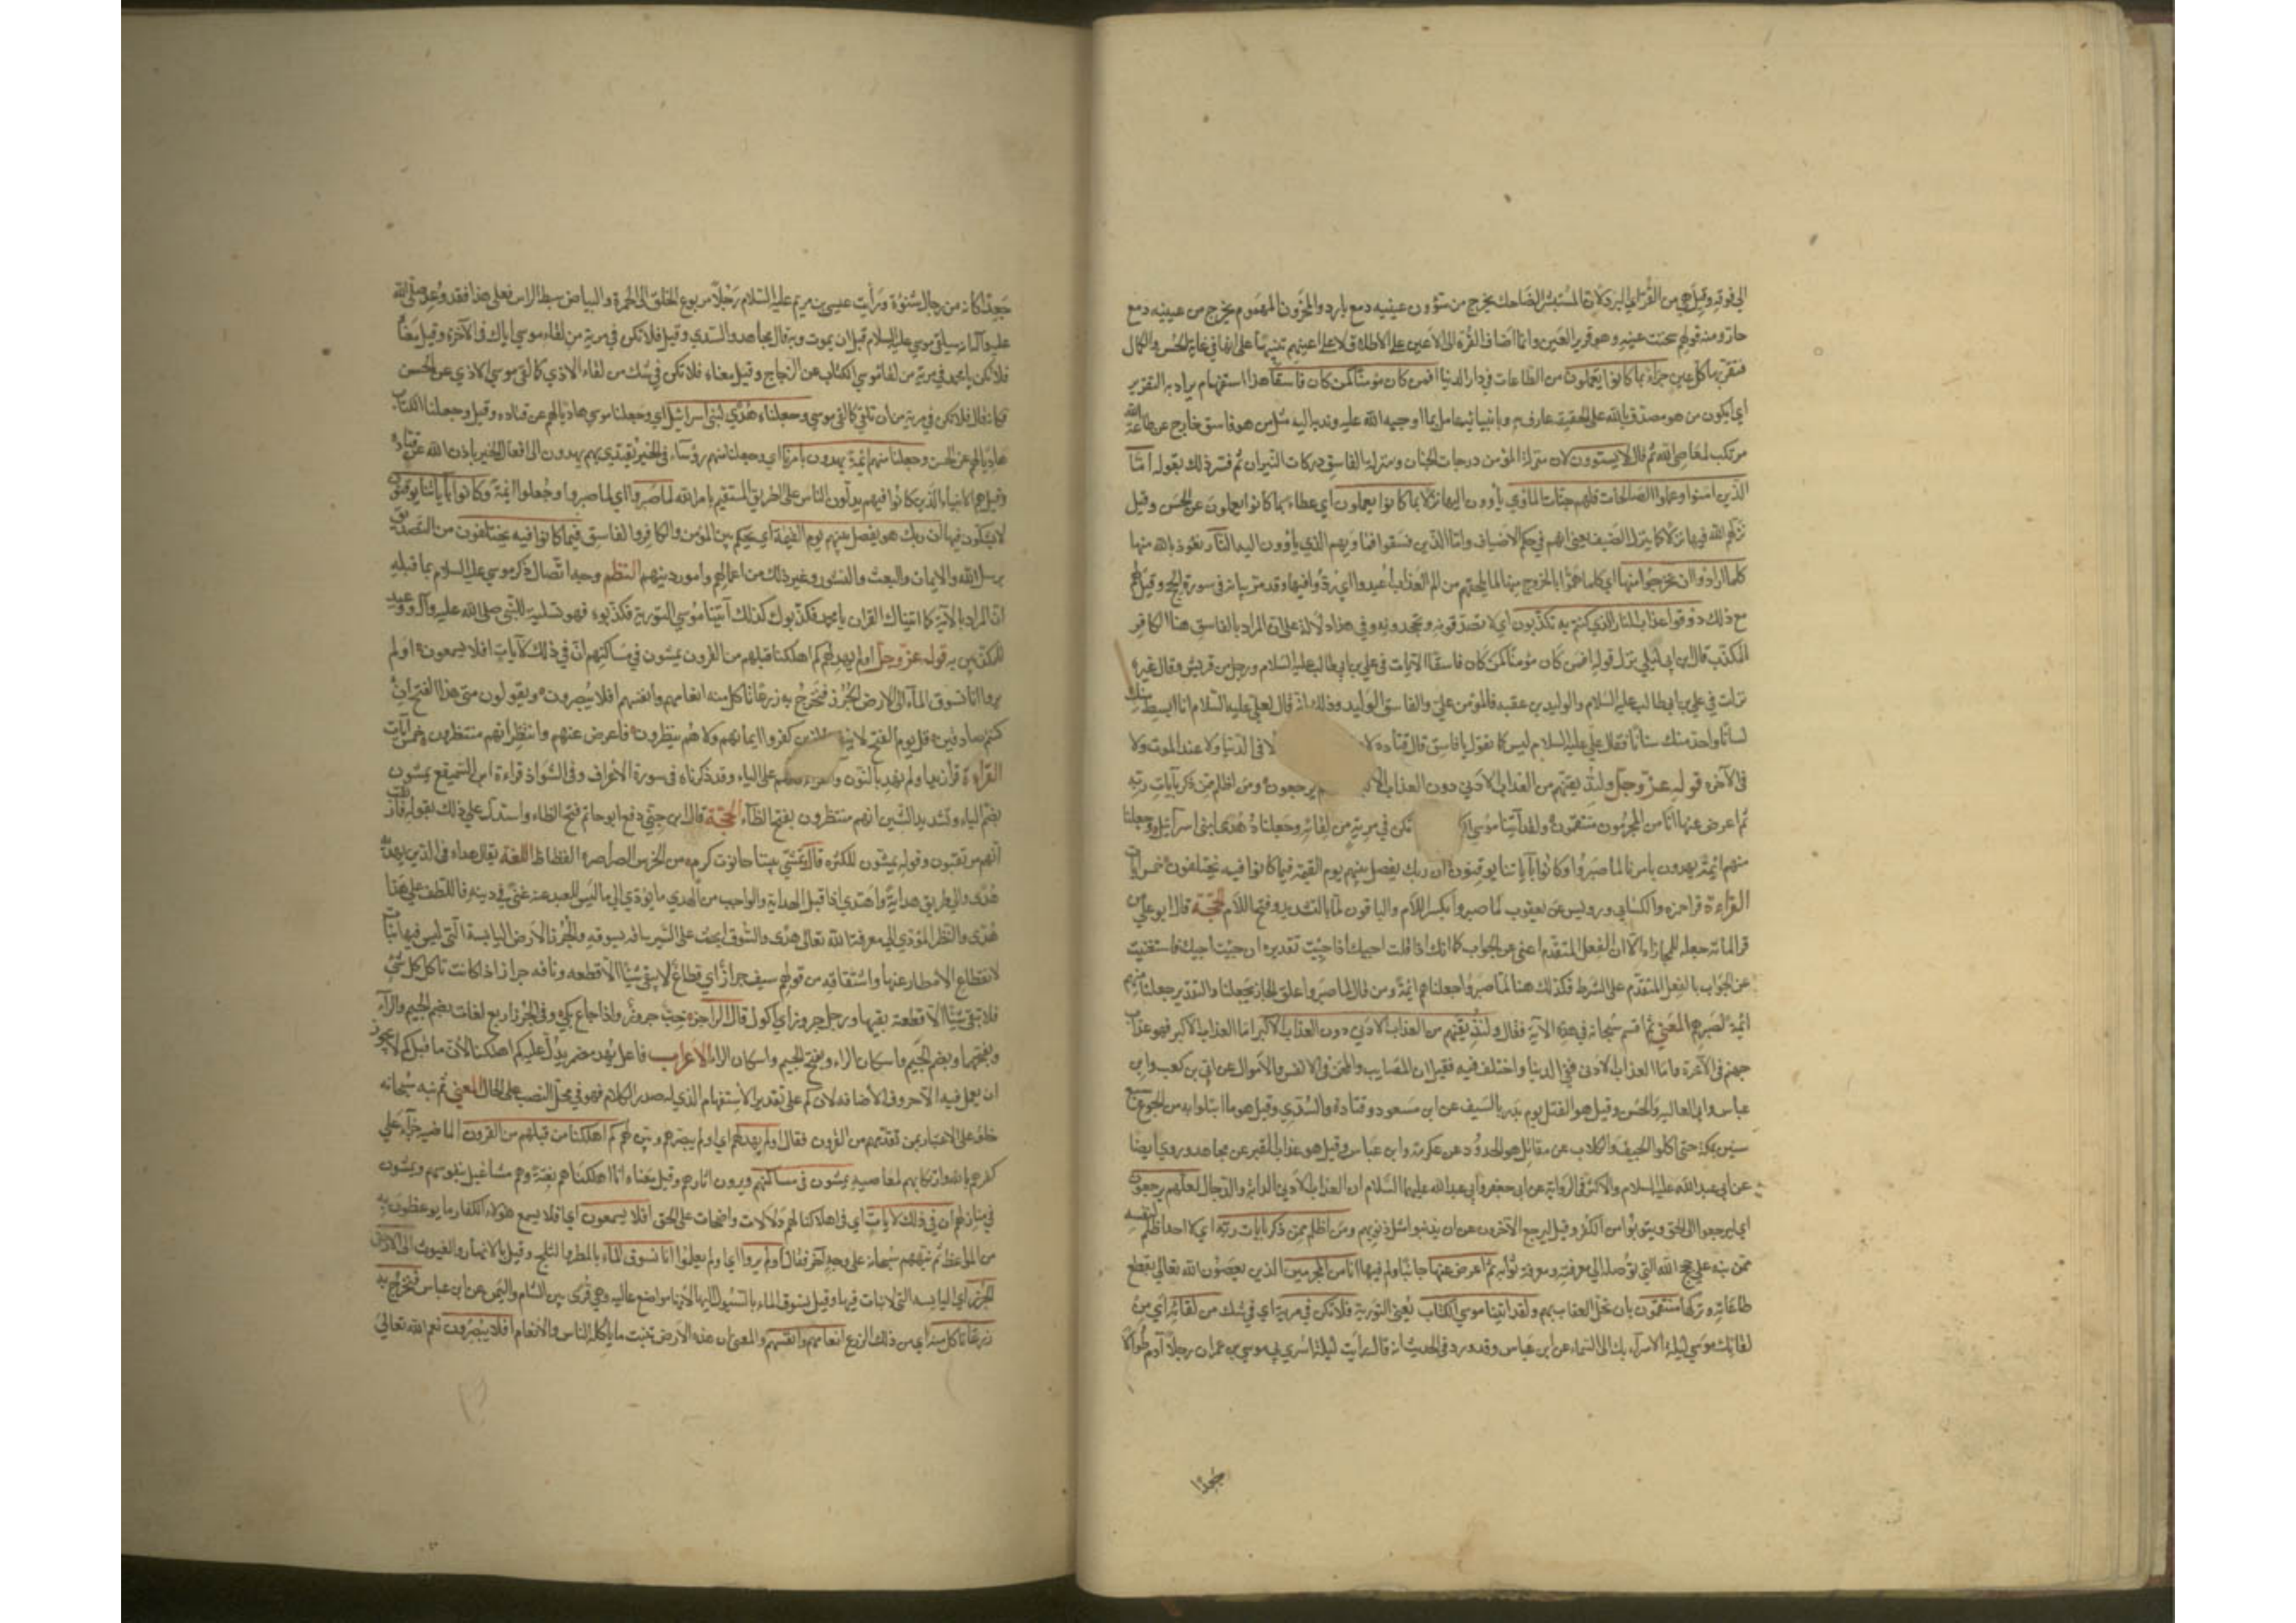 الي فوقه وقيل هي من القر اي البرد لان المستبشر الضاحك يخرج من شؤون عينيه دمع بارد والمحزون المهموم يخرج من عينيه دمع
حار ومنه قولهم سخنت عينه وهو قرير العين وانما اضاف القرة الى الاعين على الاطلاق لا على اعينهم تنبيها على انها في غاية الحسن والكمال
فتقر بها كل عين جزاء بما كانوا يعملون من الطاعات في دار الدنيا افمن كان مؤمنا كمن كان فاسقا هذا استفهام يراد به التقرير
اي ايكون من هو مصدق بالله على الحقيقة عارف به وبانبيائه عامل بما اوجبه الله عليه وندبه اليه مثل من هو فاسق خارج عن طاعة الله
مرتكب لمعاصي الله ثم قال لا يستوون لان منزلة المؤمن درجات الجنان ومنزلة الفاسق دركات النيران ثم فسر ذلك بقوله اما
الذين امنوا وعملوا الصالحات فلهم جنات المأوي يأوون اليها نزلا بما كانوا يعملون اي عطاء بما كانوا يعملون عن الحسن وقيل
نزلهم الله فيها نزلا كما ينزل الضيف يعني انهم في حكم الاضياف واما الذين فسقوا فمأويهم الذي يأوون اليه النار نعوذ بالله منها
كلما ارادوا ان يخرجوا منها اي كلما هموا بالخروج منها لما يلحقهم من الم العذاب اعيدوا اي ردوا فيها وقد مر بيانه في سورة الحج وقيل لهم
مع ذلك ذوقوا عذاب النار الذي كنتم به تكذبون اي لا تصدقون به وتجحدونه وفي هذا دلالة على ان المراد بالفاسق هنا الكافر
المكذب قال ابن ابي ليلي نزل قوله افمن كان مؤمنا كمن كان فاسقا الآيات في علي بن ابي طالب عليه السلام ورجل من قريش وقال غيره
نزلت في علي بن ابي طالب عليه السلام والوليد بن عقبه فالمؤمن علي والفاسق الوليد وذلك انه قال لعلي عليه السلام انا ابسط منك
لسانا واحد منك سنانا فقال علي عليه السلام ليس كما تقول يا فاسق قال قتاده لا لا في الدنيا ولا عند الموت ولا
في الآخره قوله عز وجل ولنذيقنهم من العذاب الادني دون العذاب الا يرجعون ومن اظلم ممن ذكر بآيات ربه
ثم اعرض عنها انا من المجرمون منتقمون ولقد آتينا موسي تكن في مرية من لقائه وجعلناه هدى لبني اسرآئيل وجعلنا
منهم ائمة يهدون بامرنا لما صبروا وكانوا بآياتنا يوقنون ان ربك يفصل بينهم يوم القيمة فيما كانوا فيه يختلفون خمس آيات
القراءة قرا حمزه والكسائي ورويس عن يعقوب لما صبروا بكسر اللام والباقون لما بالتشديد وفتح اللام الحجة قال ابو علي من
قرا لما فانه جعله للمجازاة الا ان الفعل المتقدم اغنى عن الجواب كما انك اذا قلت اجيئك اذا جيت تقديره ان جيت اجيك فاستغنيت
عن الجواب بالفعل المتقدم على الشرط فكذلك هنا لما صبروا جعلناهم ائمة ومن قال لما صبروا علق الجار بجعلنا والتقدير جعلنا منهم
ائمة لصبرهم المعني ثم اقسم سبحانه في هذه الآية فقال ولنذيقنهم من العذاب الادني دون العذاب الاكبر اما العذاب الاكبر فهو عذاب
جهنم في الآخرة واما العذاب الادني ففي الدنيا واختلف فيه فقيل انه المصايب والمحن في الانفس والاموال عن ابي بن كعب وابن
عباس وابي العالية والحسن وقيل هو القتل يوم بدر بالسيف عن ابن مسعود وقتادة والسدي وقيل هو ما ابتلوا به من الجوع سبع
سنين بمكة حتى اكلوا الجيف والكلاب عن مقاتل هو الحدود عن عكرمة وابن عباس وقيل هو عذاب القبر عن مجاهد وروي ايضا
عن ابي عبد الله عليه السلام والاكثر في الرواية عن ابي جعفر وابي عبد الله عليهما السلام ان العذاب الادني الدابة والدجال لعلهم يرجعون
اي ليرجعوا الى الحق ويتوبوا من الكفر وقيل ليرجع الآخرون عن ان يذنبوا مثل ذنوبهم ومن اظلم ممن ذكر بآيات ربه اي لا احد اظلم لنفسه
ممن نبه على حجج الله التي توصله الي معرفته ومعرفة ثوابه ثم اعرض عنها جانبا ولم فيها انا من المجرمين الذين يعصون الله تعالي بقطع
طاعاته وتركها منتقمون بان نحل العقاب بهم ولقد اتينا موسي الكتاب يعني التورية فلا تكن في مرية اي في شك من لقائه اي من
لقائك موسي ليلة الاسراء بك الى السماء عن ابن عباس وقد ورد في الحديث انه قال رايت ليلة اسري بي موسي بن عمران رجلا آدم طوالا
جعدا
جعدا كانه من رجال شنوة ورأيت عيسي بن مريم عليه السلام رجلا مربوع الخلق الى الحمرة والبياض سبط الراس فعلى هذا فقد وعد صلى الله
عليه وآله انه سيلقي موسي عليه السلام قبل ان يموت وبه قال مجاهد والسدي وقيل فلا تكن في مرية من لقاء موسي اياك في الآخرة وقيل معناه
فلا تكن يا محمد في مرية من لقاء موسي الكتاب عن الزجاج وقيل معناه فلا تكن في شك من لقاء الاذي كما لقي موسي الاذي عن الحسن
فكانه قال فلا تكن في مرية من ان تلقي كما لقي موسي وجعلناه هدي لبني اسرائيل اي وجعلنا موسي هاديا لهم عن قتاده وقيل وجعلنا الكتاب
هاديا لهم عن الحسن وجعلنا منهم ائمة يهدون بامرنا اي وجعلنا منهم رؤساء في الخير يقتدي بهم يهدون الى افعال الخير باذن الله عن قتاده
وقيل هم الانبياء الذين كانوا فيهم يدلون الناس على الطريق المستقيم بامر الله لما صبروا اي لما صبروا وجعلوا ائمة وكانوا بآياتنا يوقنون
لا يشكون فيها ان ربك هو يفصل بينهم يوم القيمة اي يحكم بين المؤمن والكافر والفاسق فيما كانوا فيه يختلفون من التصديق
برسل الله والايمان والبعث والنشور وغير ذلك من اعمالهم وامور دينهم النظم وجه اتصال ذكر موسي عليه السلام بما قبله
ان المراد بالآية كما اتيناك القرآن يا محمد فكذبوك كذلك آتينا موسي التورية فكذبوه فهو تسلية للنبي صلى الله عليه وآله ووعيد
للمكذبين به قوله عز وجل اولم يهد لهم كم اهلكنا قبلهم من القرون يمشون في مساكنهم ان في ذلك لآيات افلا يسمعون اولم
يروا انا نسوق الماء الى الارض الجرز فنخرج به زرعا تاكل منه انعامهم وانفسهم افلا يبصرون ويقولون متى هذا الفتح ان
كنتم صادقين قل يوم الفتح لا ينفع الذين كفروا ايمانهم ولا هم ينظرون فاعرض عنهم وانتظر انهم منتظرون خمس آيات
القراءة قرأ زيد اولم نهد بالنون والقراء على الياء وقد ذكرناه في سورة الاعراف وفي الشواذ قراءة ابن السميفع يمشون
بضم الياء وتشديد الشين انهم منتظرون بفتح الظاء الحجة قال ابن جني دفع ابو حاتم فتح الظاء واستدل على ذلك بقوله فارتقب
انهم مرتقبون وقوله يمشون للكثره قال يمشي بيننا حانوت كرم من الخرس الصراصرة القطاط اللغة يقال هداه في الدين يهديه
هدى والي الطريق هداية واهتدي اذا قبل الهداية والواجب من الهدي ما يؤدي الي ما ليس للعبد عنه غنى في دينه فاللطف على هذا
هدى والنظر المؤدي الي معرفة الله تعالى هدى والسوق الحث على السير ساقه يسوقه والجرز الارض اليابسة التي ليس فيها نبات
لانقطاع الامطار عنها واشتقاقه من قولهم سيف جراز اي قطاع لا يبقي شيئا الا قطعه وناقه جراز اذا كانت تاكل كل شئ
فلا تبقي شيئا الا قطعته بفيها ورجل جروز اي اكول قال الراجز خب جروز واذا جاع بكي وفي الجرز اربع لغات بضم الجيم والراء
وبفتحهما وبضم الجيم واسكان الراء وبفتح الجيم واسكان الراء الاعراب فاعل يهد مضمر يدل عليه كم اهلكنا لان ما قبل كم لا يجوز
ان يعمل فيه الا حروف الاضافه لان كم على تقدير الاستفهام الذي له صدر الكلام فهو في محل النصب على الحال المعني ثم نبه سبحانه
خلقه على الاعتبار بمن تقدمهم من القرون فقال اولم يهد لهم اي اولم يبصرهم ويبن لهم كم اهلكنا من قبلهم من القرون الماضيه جزاء على
كفرهم بالله وارتكابهم لمعاصيه يمشون في مساكنهم ويرون آثارهم وقيل معناه انا اهلكناهم بغتة وهم مشاغيل بنفوسهم ويمشون
في منازلهم ان في ذلك لآيات اي في اهلاكنا لهم دلالات واضحات على الحق افلا يسمعون اي افلا يسمع هؤلاء الكفار ما يوعظون به
من المواعظ ثم نبههم سبحانه على وجه آخر فقال اولم يروا اي اولم يعلموا انا نسوق الماء بالمطر والثلج وقيل بالانهار والعيون الى الارض
الجرز اي اليابسة التي لا نبات فيها وقيل نسوق الماء بالسيول اليها لانها مواضع عاليه وهي قرى بين الشام واليمن عن ابن عباس فنخرج به
زرعا تاكل منه اي من ذلك الزرع انعامهم وانفسهم والمعني ان هذه الارض تنبت ما ياكله الناس والانعام افلا يبصرون نعم الله تعالي